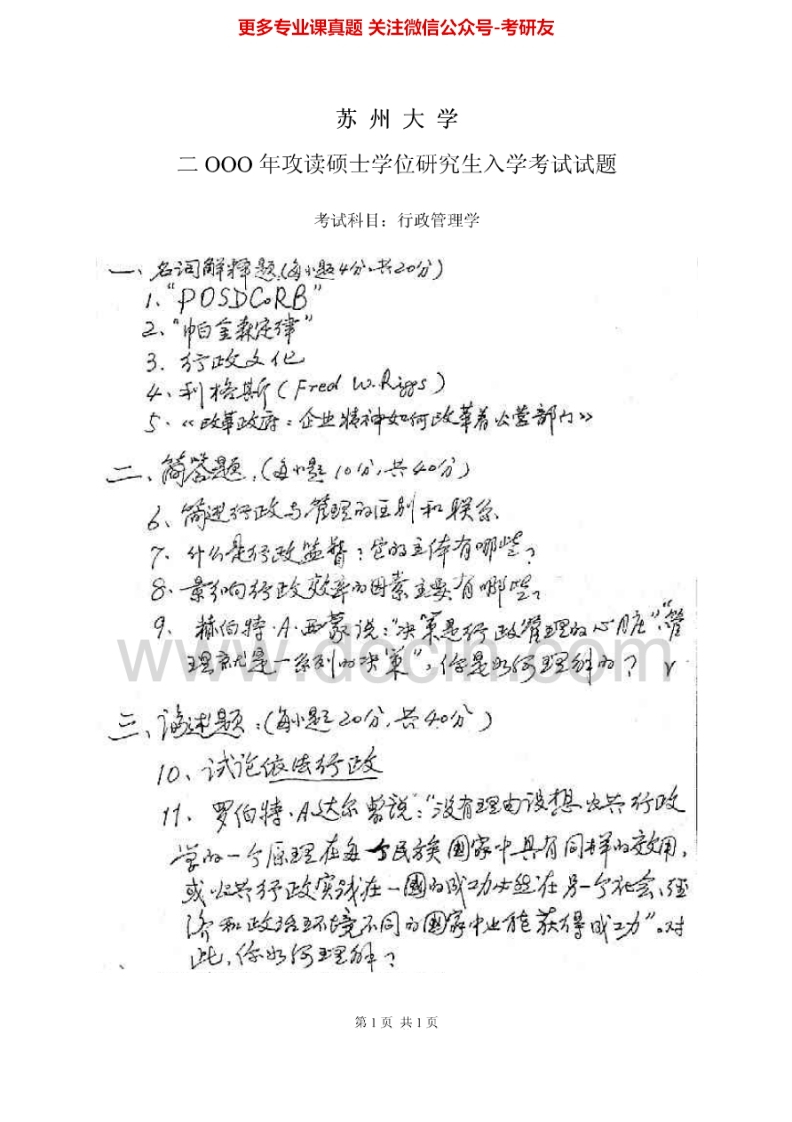 更多专业课真题 关注微信公众号-考研友
苏 州 大 学
二 OOO 年攻读硕士学位研究生入学考试试题
考试科目：行政管理学
一、名词解释题（每小题4分，共20分）
1."POSDCoRB"
2、"帕金森定律"
3. 行政文化
4、利格斯（Fred W. Riggs）
5.《改革政府：企业精神如何改革着公营部门》
二、简答题，（每小题10分，共40分）
6、简述行政与管理的区别和联系
7、什么是行政监督？它的主体有哪些？
8、影响行政效率的因素主要有哪些？
9、赫伯特·A·西蒙说："决策是行政管理的心脏"，"管
理就是一系列的决策"，你是如何理解的？
www.docin.com
三、论述题：（每小题20分，共40分）
10、试论依法行政
11、罗伯特·A.达尔曾说："没有理由设想公共行政
学的一个原理在每一个民族国家中具有同样的效用，
或公共行政实践在一国的成功必然在另一个社会、经
济和政治环境不同的国家中也能获得成功"。对
此，你如何理解？
第 1 页 共 1 页